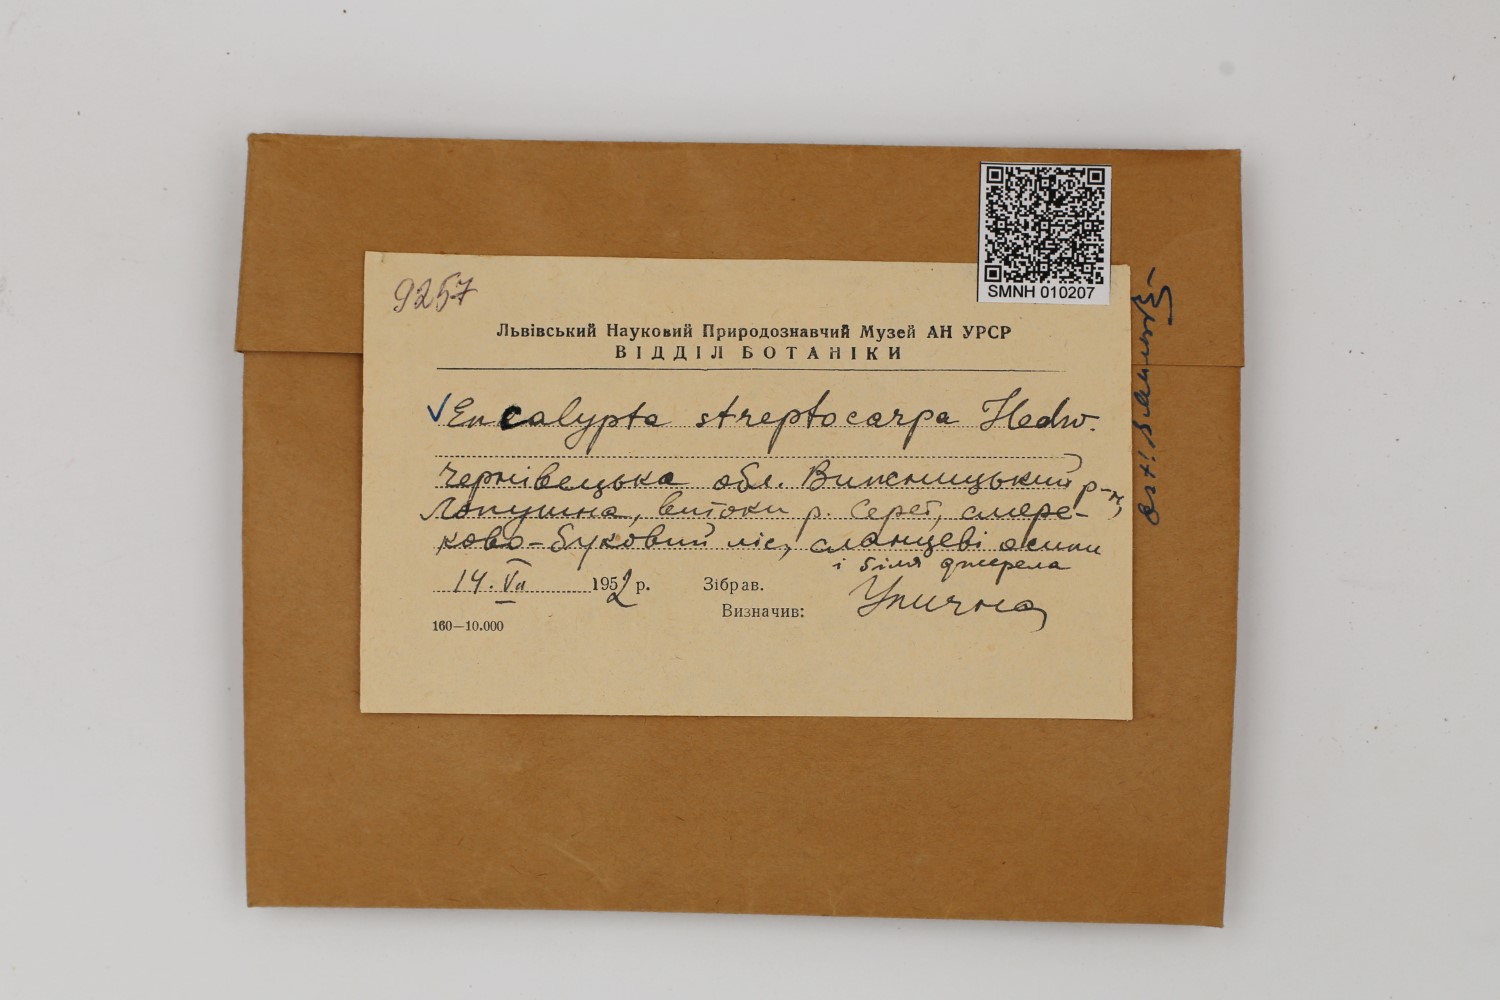 SMNH 010207
9257
Львівський Науковий Природознавчий Музей АН УРСР
ВІДДІЛ БОТАНІКИ
✓ Encalypta streptocarpa Hedw.
Чернівецька обл. Вижницький р-н,
Лопушна, витоки р. Серет, смере-
ково-буковий ліс, сланцеві осипи
і біля джерела
14. VII 1952 р. Зібрав.
Визначив:
160—10.000